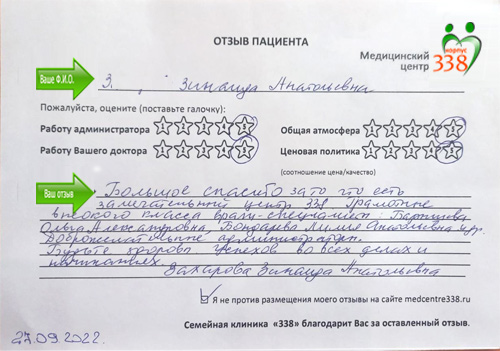 ОТЗЫВ ПАЦИЕНТА
корпус
338
Медицинский
центр
Ваше Ф.И.О.
З. Зинаида Анатольевна
Пожалуйста, оцените (поставьте галочку):
Работу администратора 1 2 3 4 5
Общая атмосфера 1 2 3 4 5
Работу Вашего доктора 1 2 3 4 5
Ценовая политика 1 2 3 4 5
(соотношение цена/качество)
Ваш отзыв
Большое спасибо за то что есть
замечательный центр 338. Грамотные
высокого класса врачи-специалисты:
Ольга Александровна, Бондарева Лилия Анатольевна и др.
Доброжелательные администраторы.
Будьте здоровы успехов во всех делах и
начинаниях.
Захарова Зинаида Анатольевна
Я не против размещения моего отзывы на сайте medcentre338.ru
Семейная клиника «338» благодарит Вас за оставленный отзыв.
27.09.2022.